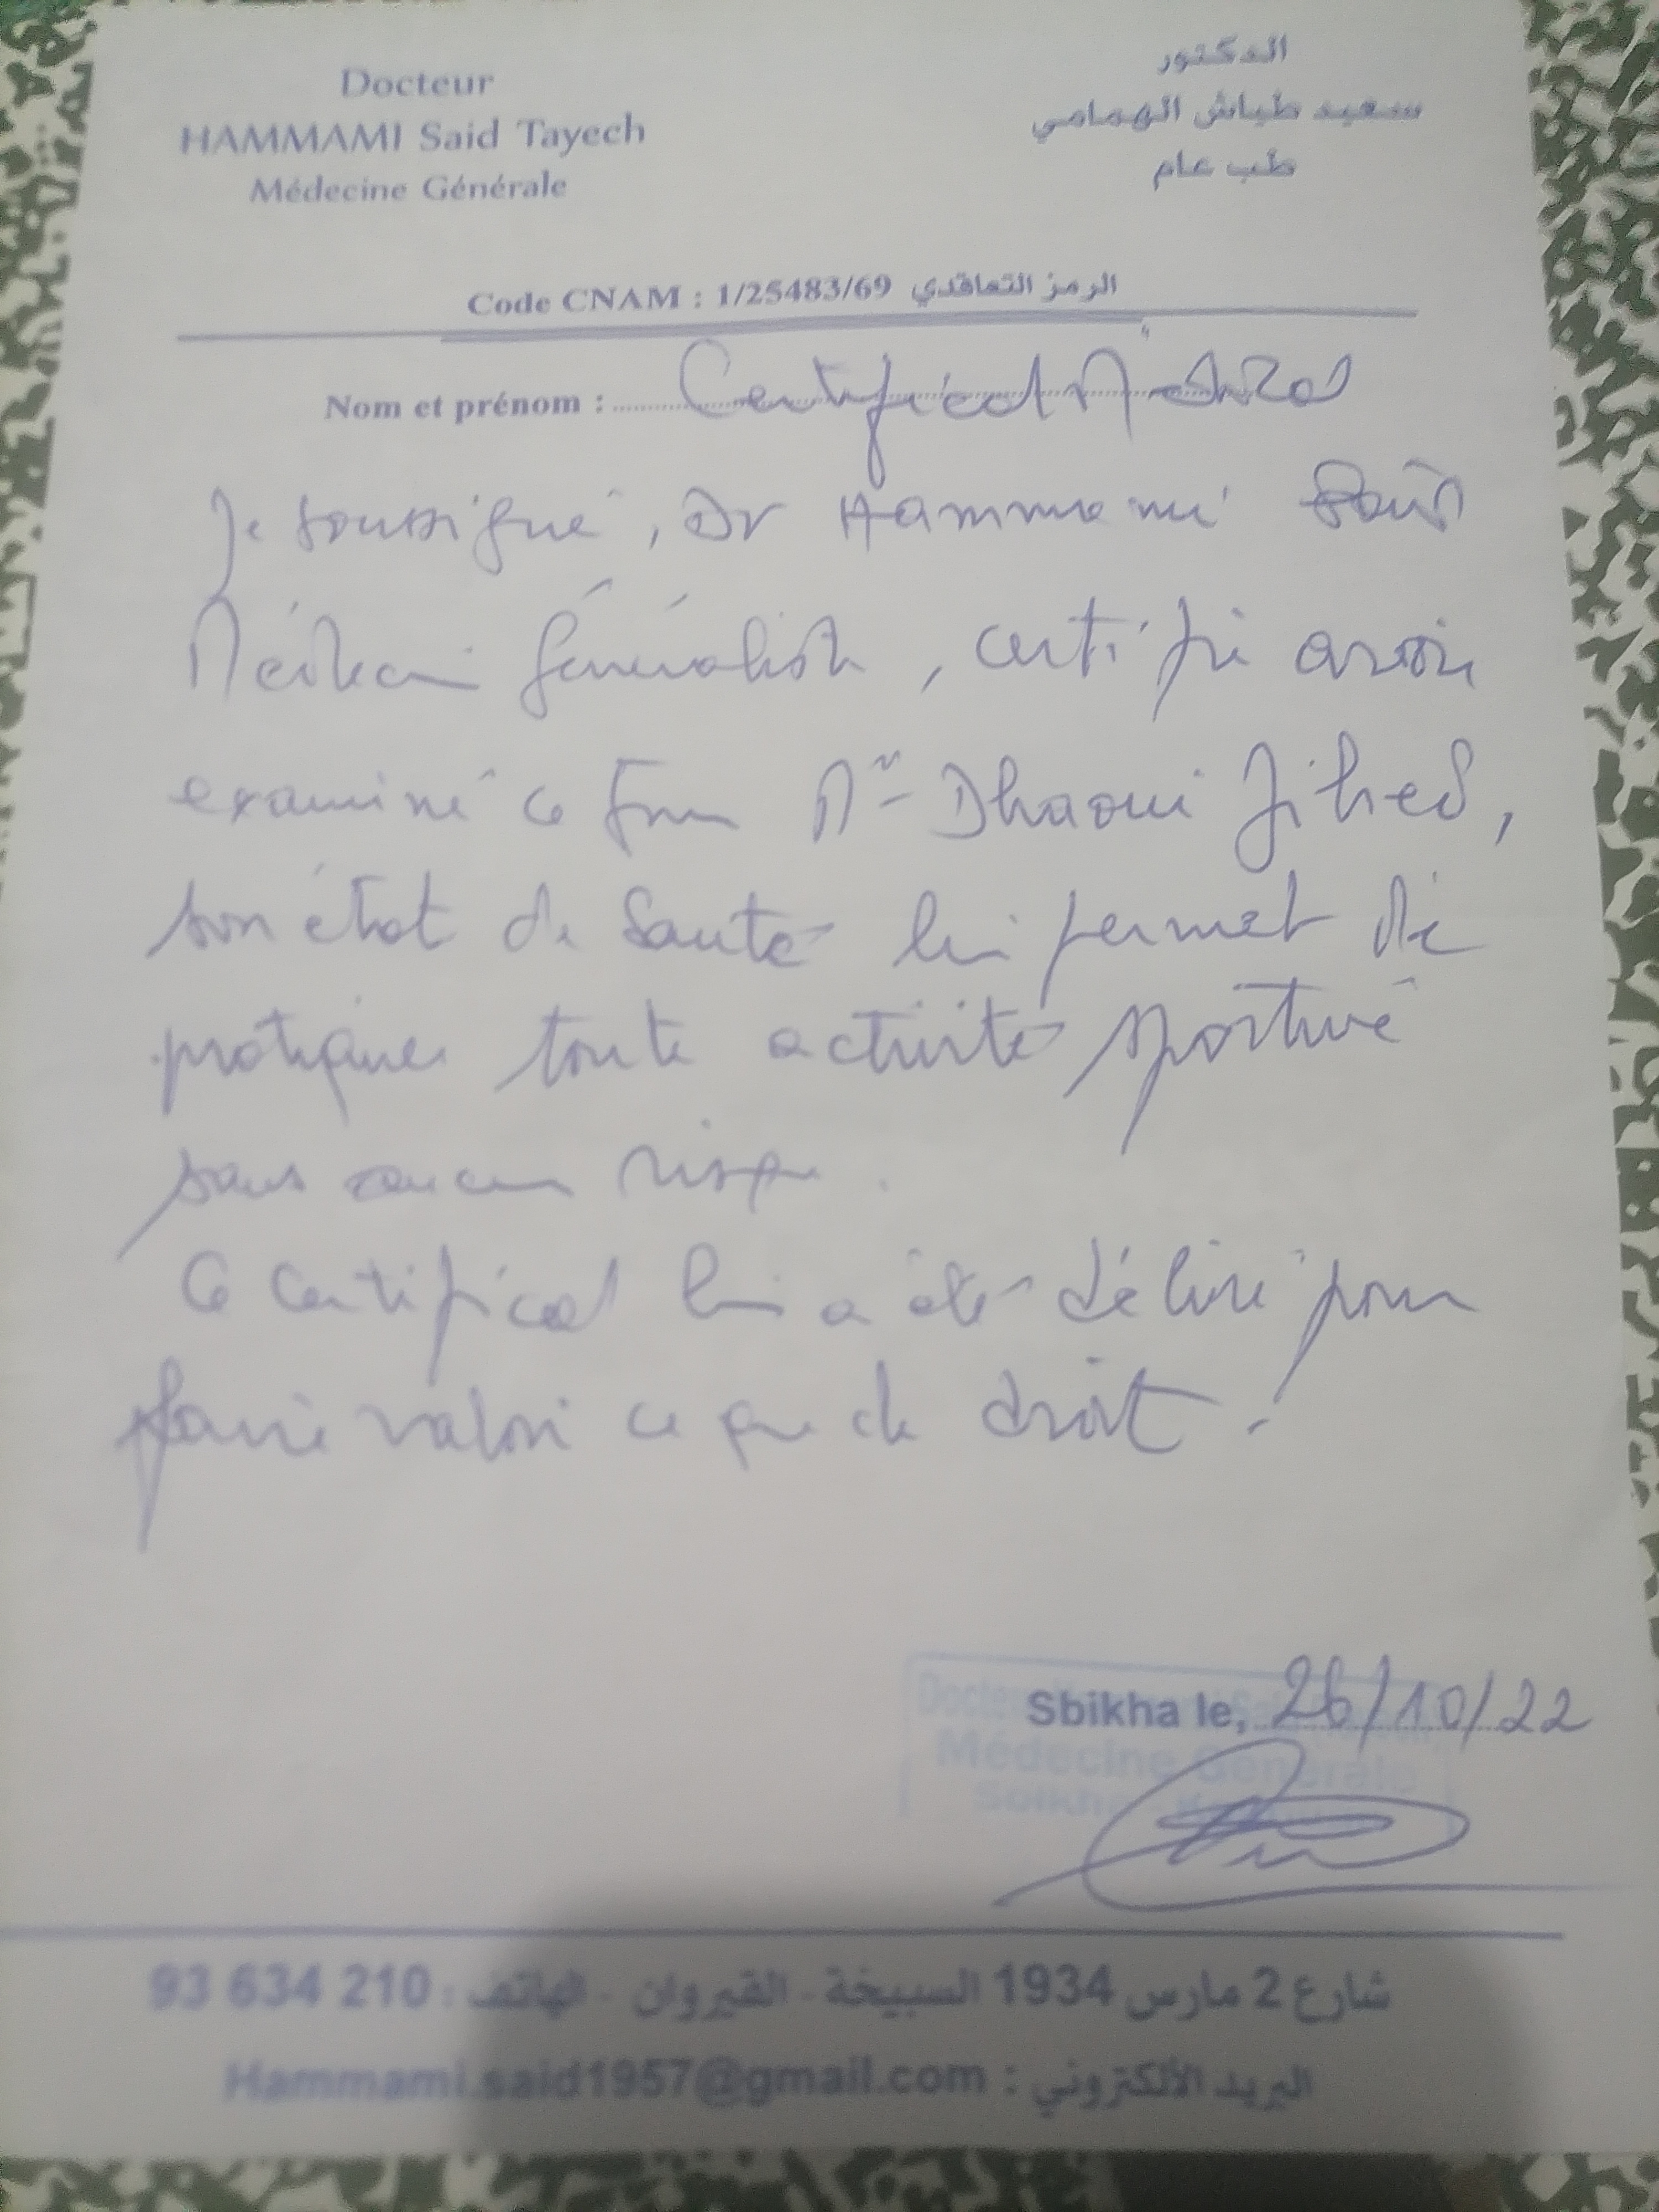 Docteur
HAMMAMI Said Tayech
Médecine Générale
الدكتور
سعيد طياش الهمامي
طب عام
Code CNAM : 1/25483/69 الرمز التعاقدي
Nom et prénom : Certificat Médical
Je soussigné, Dr Hammami Said
Médecin Généraliste, certifie avoir
examiné ce jour Mr Dhaoui Jihed,
son état de Santé lui permet de
pratiquer toute activité sportive
sans aucun risque.
Ce Certificat lui a été délivré pour
faire valoir ce que de droit.
Sbikha le, 26/10/22
Médecine Générale
شارع 2 مارس 1934 السبيخة - القيروان - الهاتف : 93 634 210
البريد الألكتروني : Hammami.said1957@gmail.com